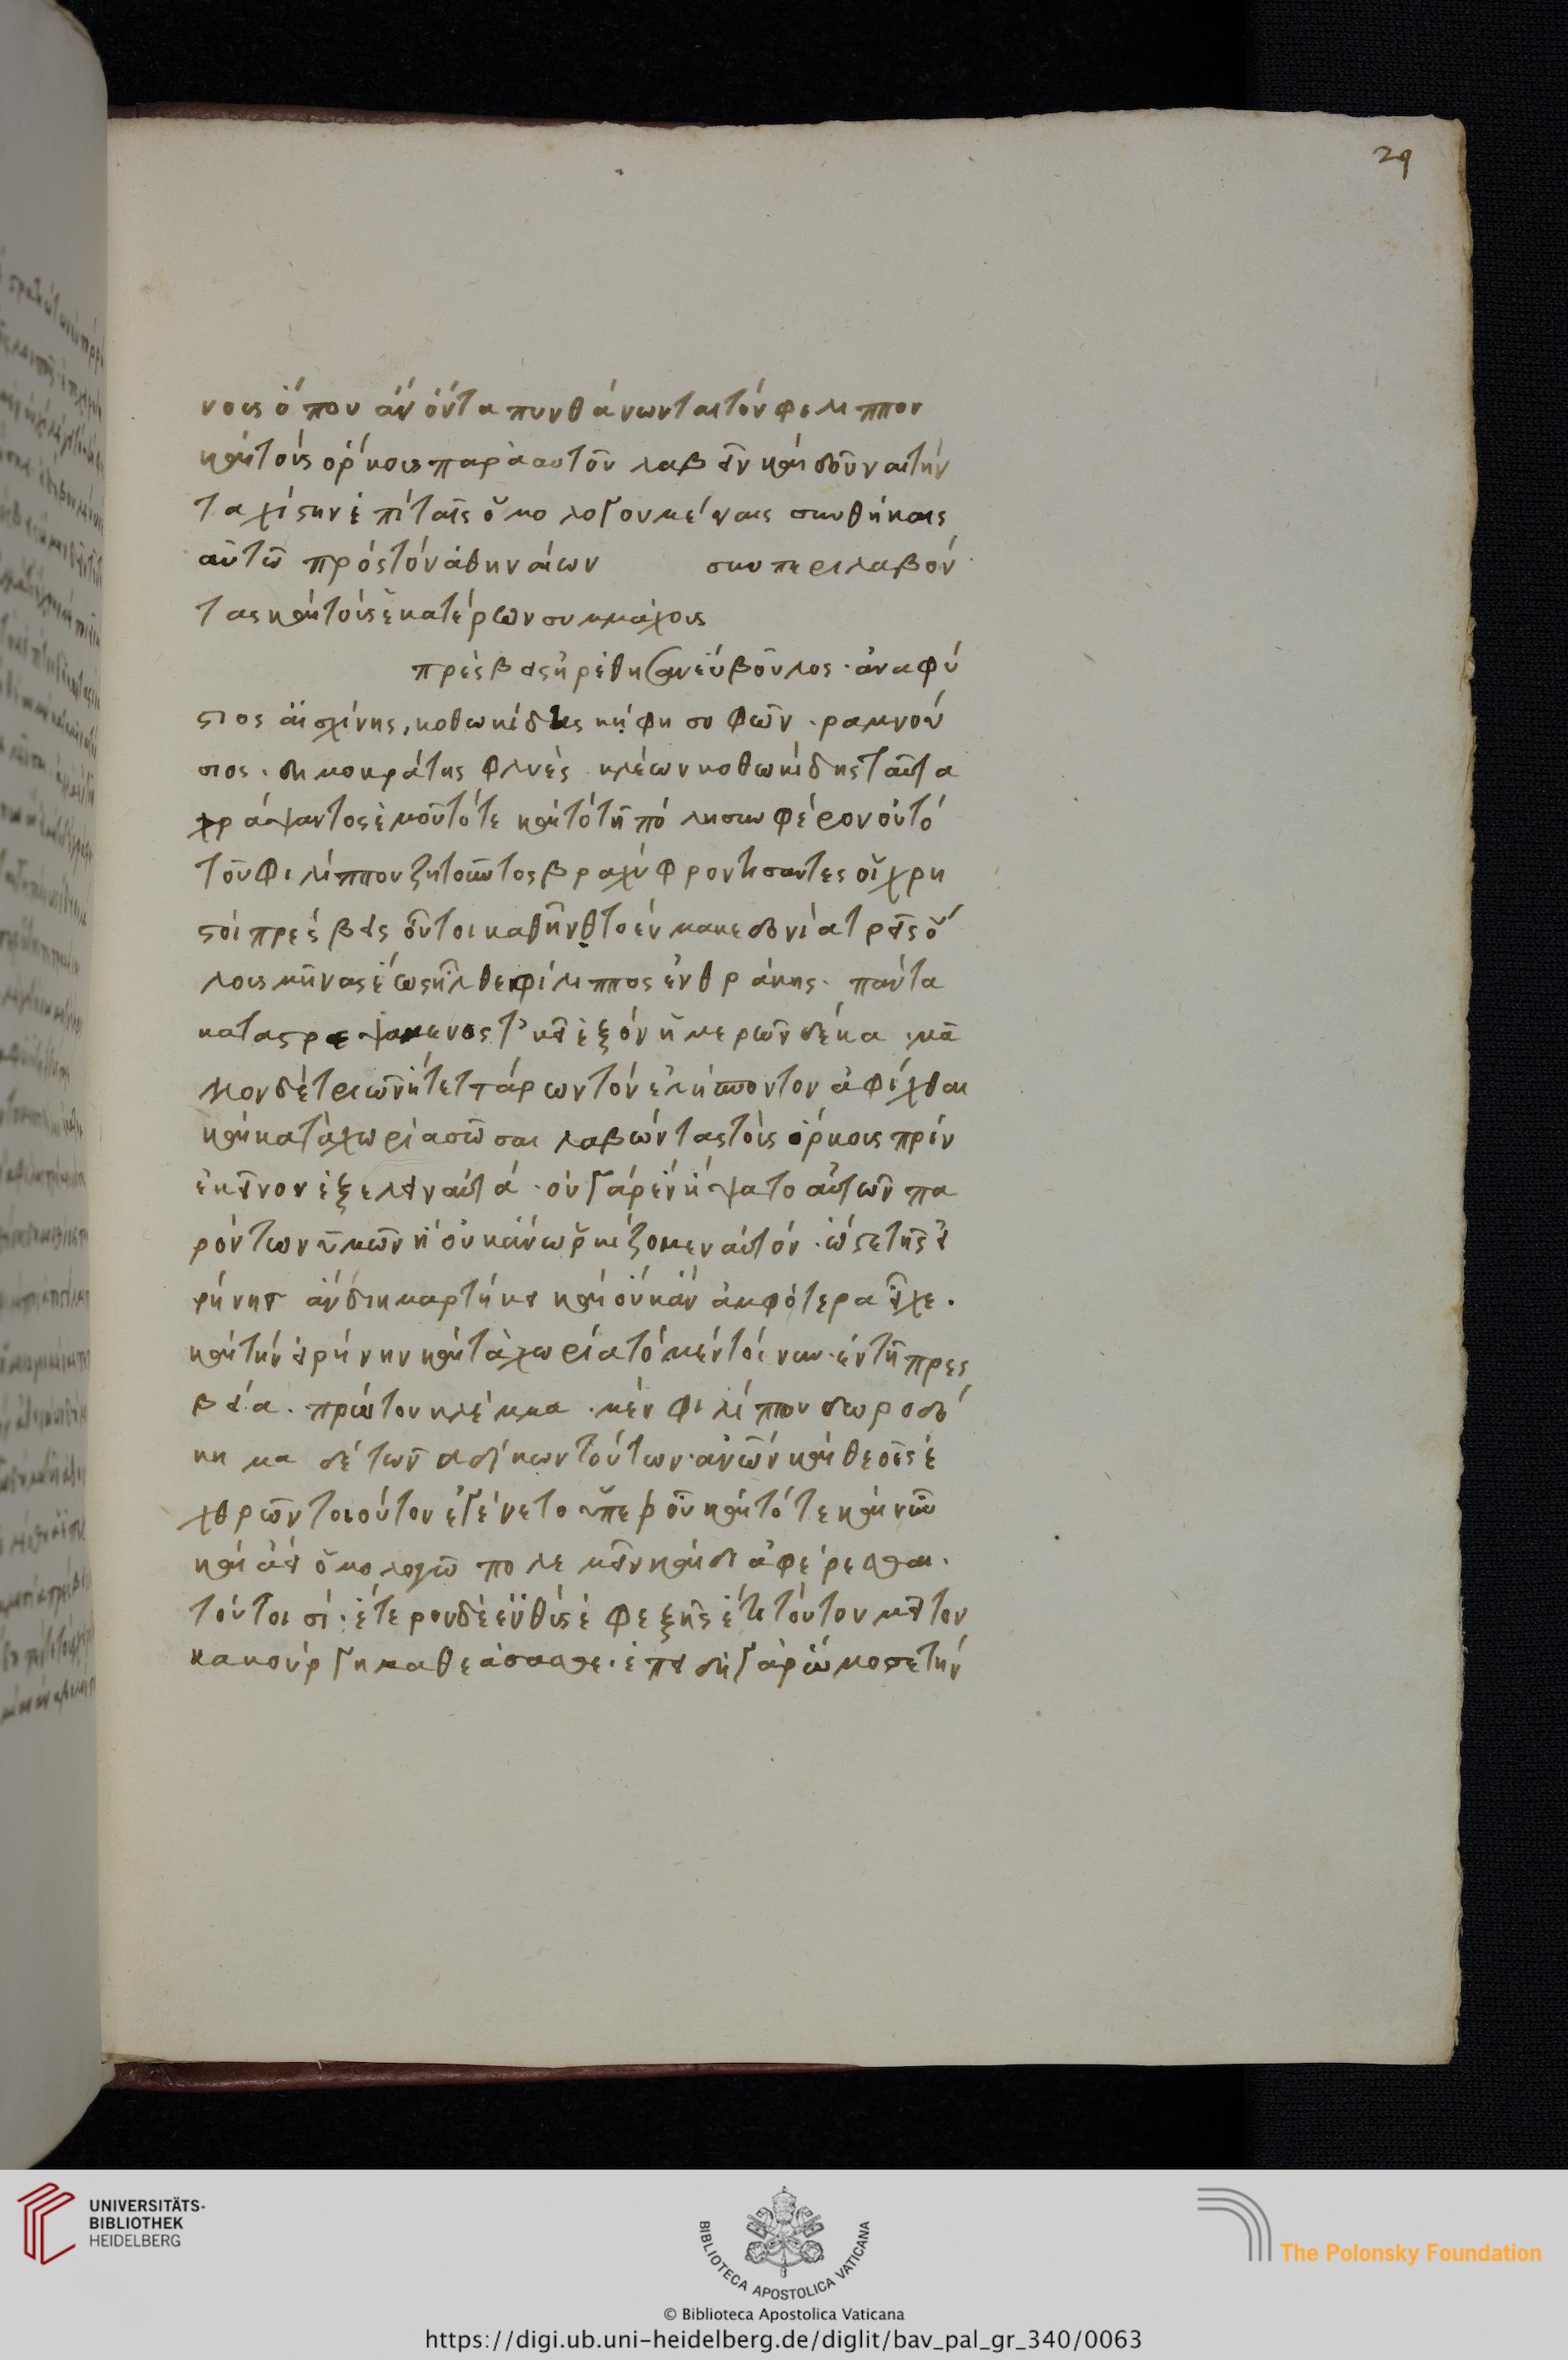 29
νους ὅπου ἂν ὄντα πυνθάνωνται τὸν φιλιππον
καὶ τοὺς ὅρκους παρὰ αυτοῦ λαβεῖν καὶ δοῦναι τὴν
ταχίστην ἐπὶ ταῖς ὁμολογουμέναις συνθήκαις
αὐτῶ πρὸς τὸν ἀθηναίων συμπεριλαβόν
τας καὶ τοὺς ἑκατέρων συμμάχους
πρέσβεις ἡρέθησαν εὔβουλος · ἀναφύ
στιος αἰσχίνης, κοθωκίδης κηφησοφῶν · ραμνού
σιος · δημοκράτης φλυεὺς κλέων κοθωκίδης ταῦτα
γράψαντος ἐμοῦ τότε καὶ τὸ τῆ πόλει συμφέρον οὐ τὸ
τοῦ φιλίππου ζητοῦντος βραχὺ φροντίσαντες οἱ χρη
στοὶ πρέσβεις οὗτοι καθῆντο ἐν μακεδονία τρεῖς ὅ
λους μῆνας ἕως ἦλθε φίλιππος ἐν θράκης · πάντα
καταστρεψάμενος τ' κεῖ ἐξὸν ἡμερῶν δέκα · μᾶ
λλον δὲ τριῶν ἢ τεττάρων τὸν ἑλήσποντον ἀφίχθαι
καὶ κατὰ χωρία σῶσαι λαβώντας τοὺς ὅρκους πρὶν
ἐκεῖνον ἐξελεῖν αὐτά · οὐ γὰρ ἂν ἥψατο αὐτῶν πα
ρόντων ὑμῶν ἢ οὐκ ἂν ὡρκίζομεν αὐτόν · ὥστε τῆς εἰ
ρήνης ἂν διημαρτήκει καὶ οὐκ ἂν ἀμφότερα εἶχε ·
καὶ τὴν εἰρήνην καὶ τὰ χωρία τὸ μὲν τοίνυν · ἐν τῆ πρεσ
βεία · πρῶτον κλέμμα · μὲν φιλίππου δωροδό
κημα δὲ τῶν ἀδίκων τούτων ἀνῶν καὶ θεοῖς ἐ
χθρῶν τοιοῦτον ἐγένετο ὑπὲρ οὗ καὶ τότε καὶ νῦν
καὶ ἀεὶ ὁμολογῶ πολεμεῖν καὶ διαφέρεσθαι ·
τούτοισί · ἕτερον δὲ εὐθὺς ἐφεξῆς ἔτι τούτου μεῖζον
κακούργημα θεάσασθε · ἐπειδὴ γὰρ ὤμοσε τὴν
UNIVERSITÄTS-
BIBLIOTHEK
HEIDELBERG
BIBLIOTECA APOSTOLICA VATICANA
The Polonsky Foundation
© Biblioteca Apostolica Vaticana
https://digi.ub.uni-heidelberg.de/diglit/bav_pal_gr_340/0063